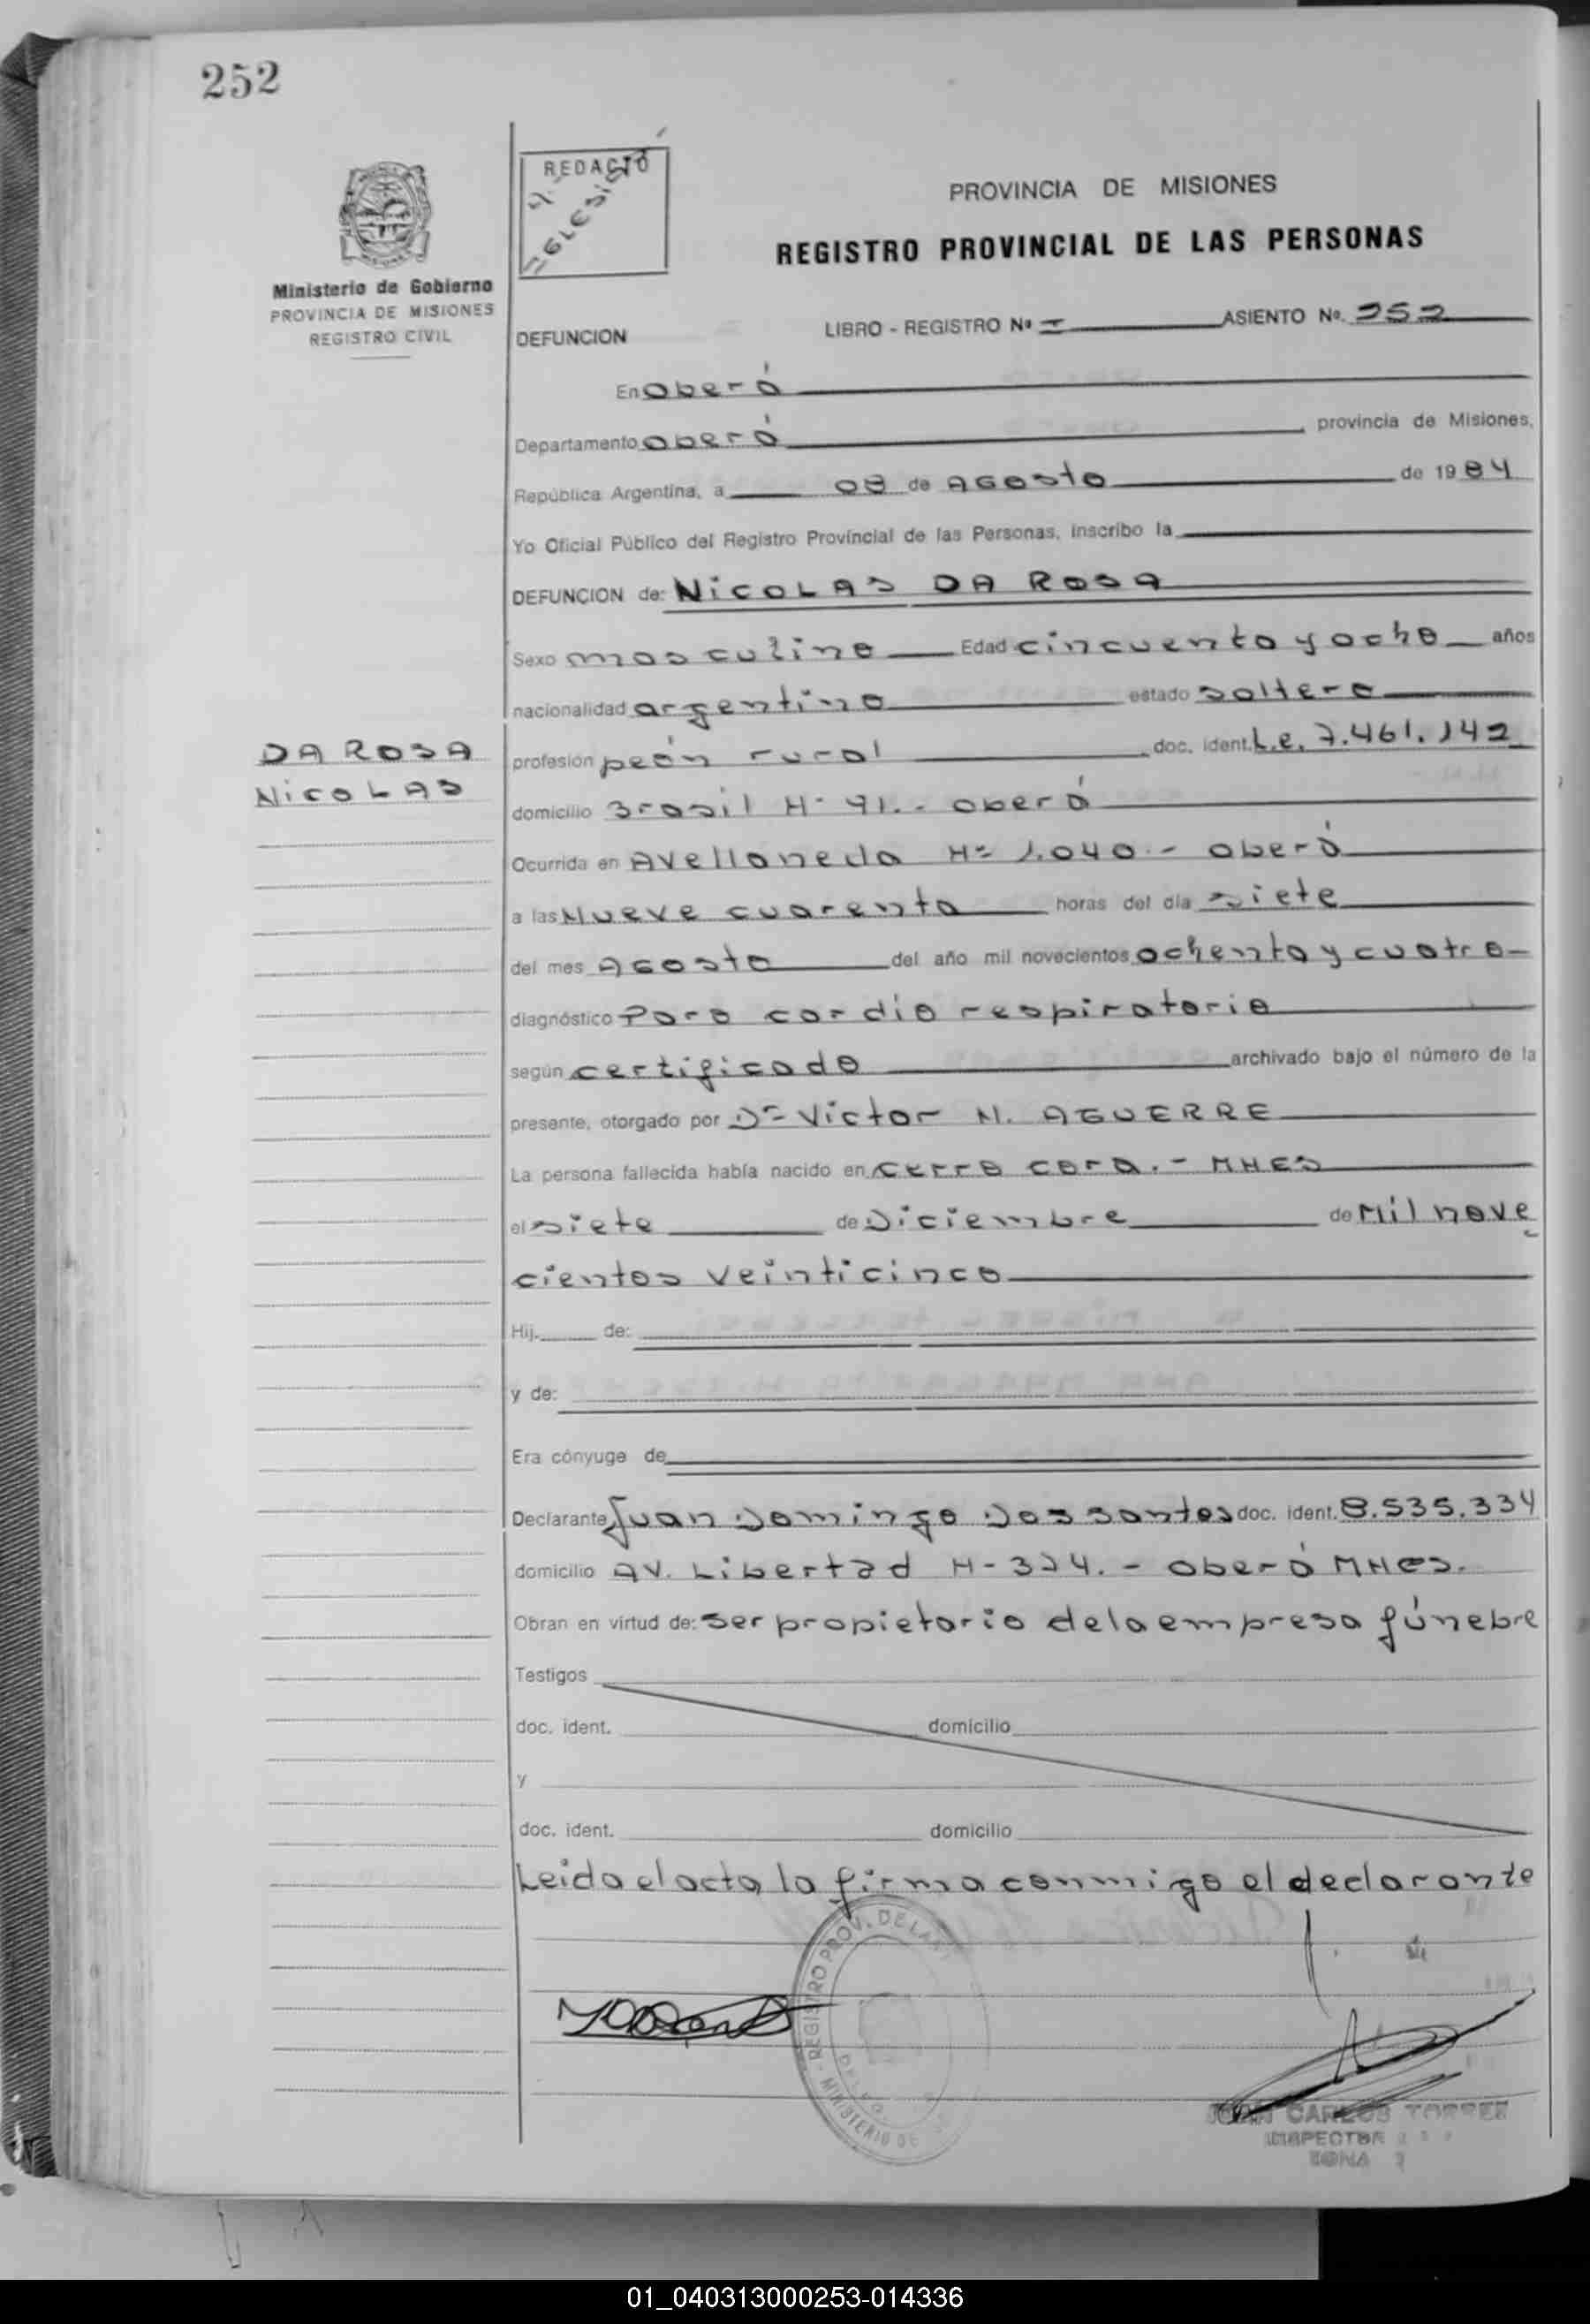 252
REDACTÓ
Y.
IGLESIAS
Ministerio de Gobierno
PROVINCIA DE MISIONES
REGISTRO CIVIL
PROVINCIA DE MISIONES
REGISTRO PROVINCIAL DE LAS PERSONAS
DEFUNCION LIBRO - REGISTRO Nº I ASIENTO Nº 252
En Oberá
Departamento Oberá provincia de Misiones,
República Argentina, a 08 de Agosto de 1984
Yo Oficial Público del Registro Provincial de las Personas, inscribo la
DEFUNCION de: NicoLAS DA ROSA
Sexo masculino Edad cincuenta y ocho años
nacionalidad argentino estado soltero
DA ROSA
NicoLAS
profesión peón rural doc. ident. L.e. 7.461.142
domicilio Brasil Nº 91.- Oberá
Ocurrida en Avellaneda Nº 1.040.- Oberá
a las Nueve cuarenta horas del día siete
del mes Agosto del año mil novecientos ochenta y cuatro
diagnóstico Paro cardio respiratorio
según certificado archivado bajo el número de la
presente, otorgado por Dr Victor N. AGUERRE
La persona fallecida había nacido en cerro cora.- MNES
el siete de Diciembre de Mil nove
cientos veinticinco
Hij de:
y de:
Era cónyuge de
Declarante Juan Domingo Dos santos doc. ident. 8.535.334
domicilio AV. Libertad N- 324.- Oberá MNes.
Obran en virtud de: ser propietario de la empresa fúnebre
Testigos
doc. ident. domicilio
y
doc. ident. domicilio
Leida el acta, la firma conmigo el declarante
REGISTRO PROV. DE LAS
MINISTERIO DE
JUAN CARLOS TORRES
INSPECTOR
ZONA
01_040313000253-014336